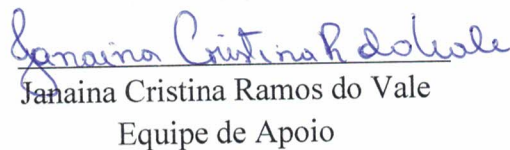 Janaina Cristina R do Vale
Janaina Cristina Ramos do Vale
Equipe de Apoio